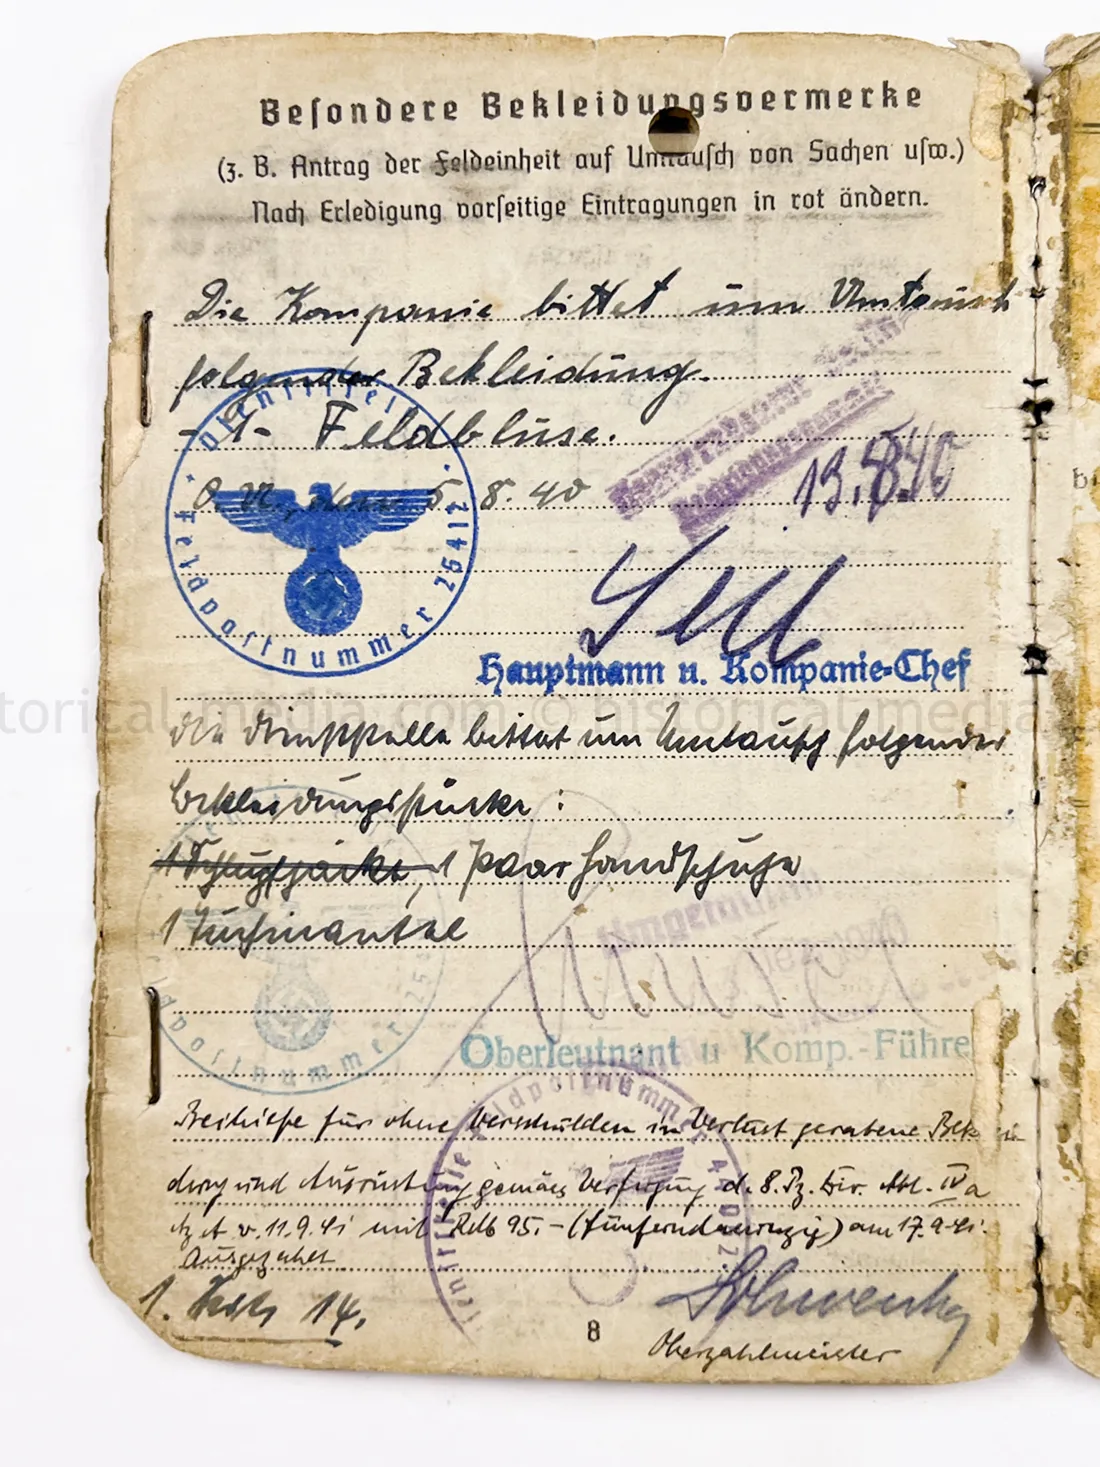 Besondere Bekleidungsvermerke
(z. B. Antrag der Feldeinheit auf Umtausch von Sachen usw.)
Nach Erledigung vorseitige Eintragungen in rot ändern.
Die Kompanie bittet um Umtausch
folgender Bekleidung.
-1- Feldbluse.
O.U., den 5. 8. 40
13.8.40
Dienststelle
Feldpostnummer 26412
Hauptmann u. Kompanie-Chef
historical-media.com © historical-media
die Dienststelle bittet um Umtausch folgender
Bekleidungsstücke :
1 Paar Handschuhe
1 Tuchmantel
Umgetauscht
Oberleutnant u Komp.-Führe
Feldpostnummer
Dienststelle Feldpostnumm
Beihilfe für ohne Verschulden in Verlust geratene Bek
dung und Ausrüstung gemäss Verfügung d. 8. Pz. Div. Abt. IVa
v. 11.9.41 mit Rdb 95.- (fünfundneunzig) am 17.9.41.
Ausgezahlt
1. 14.
8
Oberzahlmeister